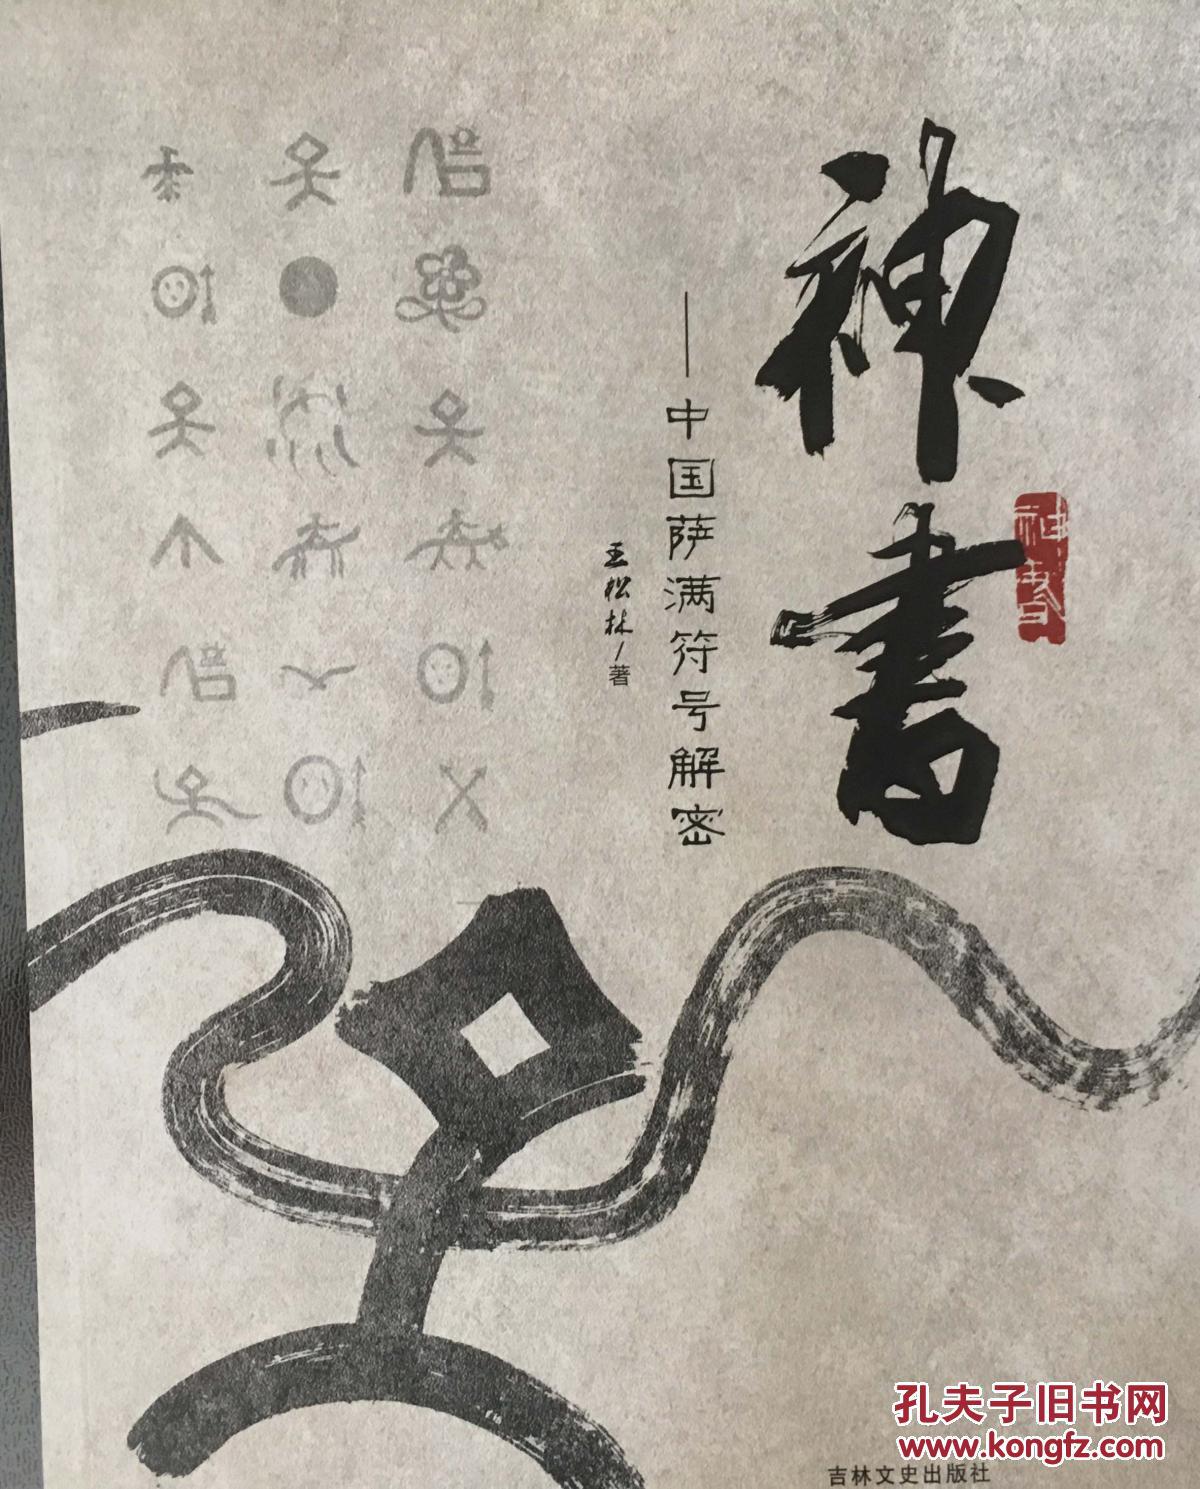 神書
——中国萨满符号解密
王松林/著
神书
吉林文史出版社
孔夫子旧书网
www.kongfz.com